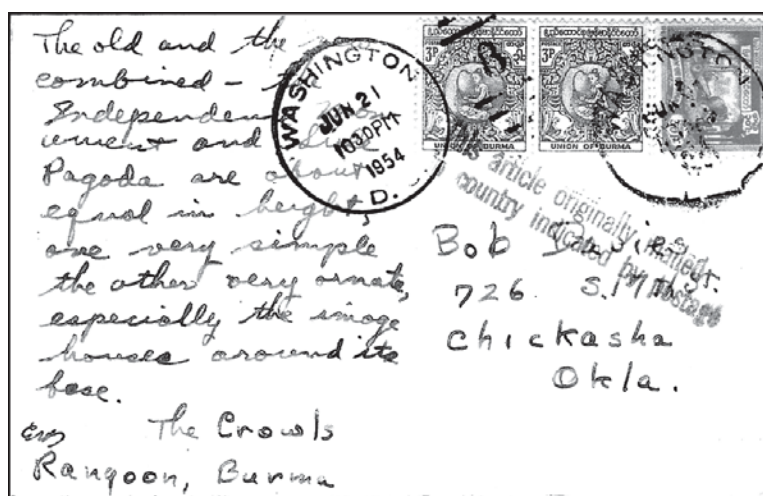 The old and the
combined –
Independent
ument and
Pagoda are about
equal in height,
one very simple
the other very ornate,
especially the image
houses around its
base.
The Crowls
Rangoon, Burma
WASHINGTON
JUN 21
10 30 PM
1954
D.
3P
UNION OF BURMA
3P
UNION OF BURMA
article originally mailed
country indicated by postage
Bob Davies
726 S. 17th St.
Chickasha
Okla.